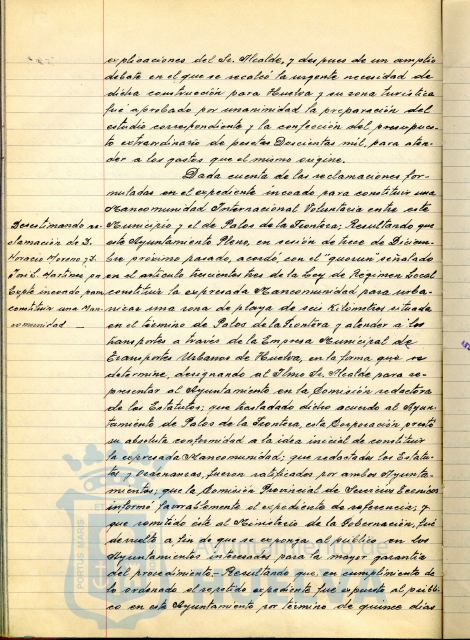 explicaciones del Sr. Alcalde, y despues de un amplio
debate en el que se recalcó la urgente necesidad de
dicha construcción para Huelva y su zona turística
fué aprobado por unanimidad la preparación del
estudio correspondiente y la confección del presupues-
to extraordinario de pesetas Doscientas mil, para aten-
der a los gastos que el mismo origine.
Dada cuenta de las reclamaciones for-
muladas en el expediente incoado, para constituir una
Mancomunidad Internacional Voluntaria entre este
Municipio y el de Palos de la Frontera; Resultando que
este Ayuntamiento Pleno, en sesión de trece de Diciem-
bre próximo pasado, acordó, con el "quorum" señalado
en el artículo trescientos tres de la Ley de Régimen Local
constituir la expresada Mancomunidad para urba-
nizar una zona de playa de seis Kilómetros situada
en el término de Palos de la Frontera y atender a los
transportes a través de la Empresa Municipal de
Transportes Urbanos de Huelva, en la forma que se
determine, designando al Iltmo Sr. Alcalde para re-
presentar al Ayuntamiento en la Comisión redactora
de los Estatutos; que trasladado dicho acuerdo al Ayun-
tamiento de Palos de la Frontera, esta Corporación prestó
su absoluta conformidad a la idea inicial de constituir
la expresada Mancomunidad; que redactados los Estatu-
tos y Ordenanzas, fueron ratificados por ambos Ayunta-
mientos; que la Comisión Provincial de Servicios Tecnicos
informó favorablemente el expediente de referencia; y
que remitido éste al Ministerio de la Gobernación, fué
devuelto a fin de que se exponga al público en los
Ayuntamientos interesados para la mayor garantia
del procedimiento.- Resultando que, en cumplimiento de
lo ordenado el repetido expediente fué expuesto al públi-
co en este Ayuntamiento por término de quince días
Desestimando re-
clamación de D.
Horacio Moreno y D.
José L. Martinez por
Expte incoado, para
constituir una Man-
comunidad
PORTUS MARIS ET